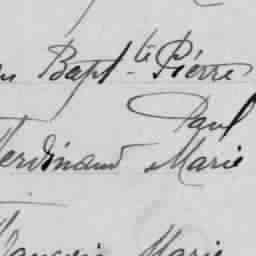 Bapt.te Pierre
Paul
Ferdinand Marie
Marie